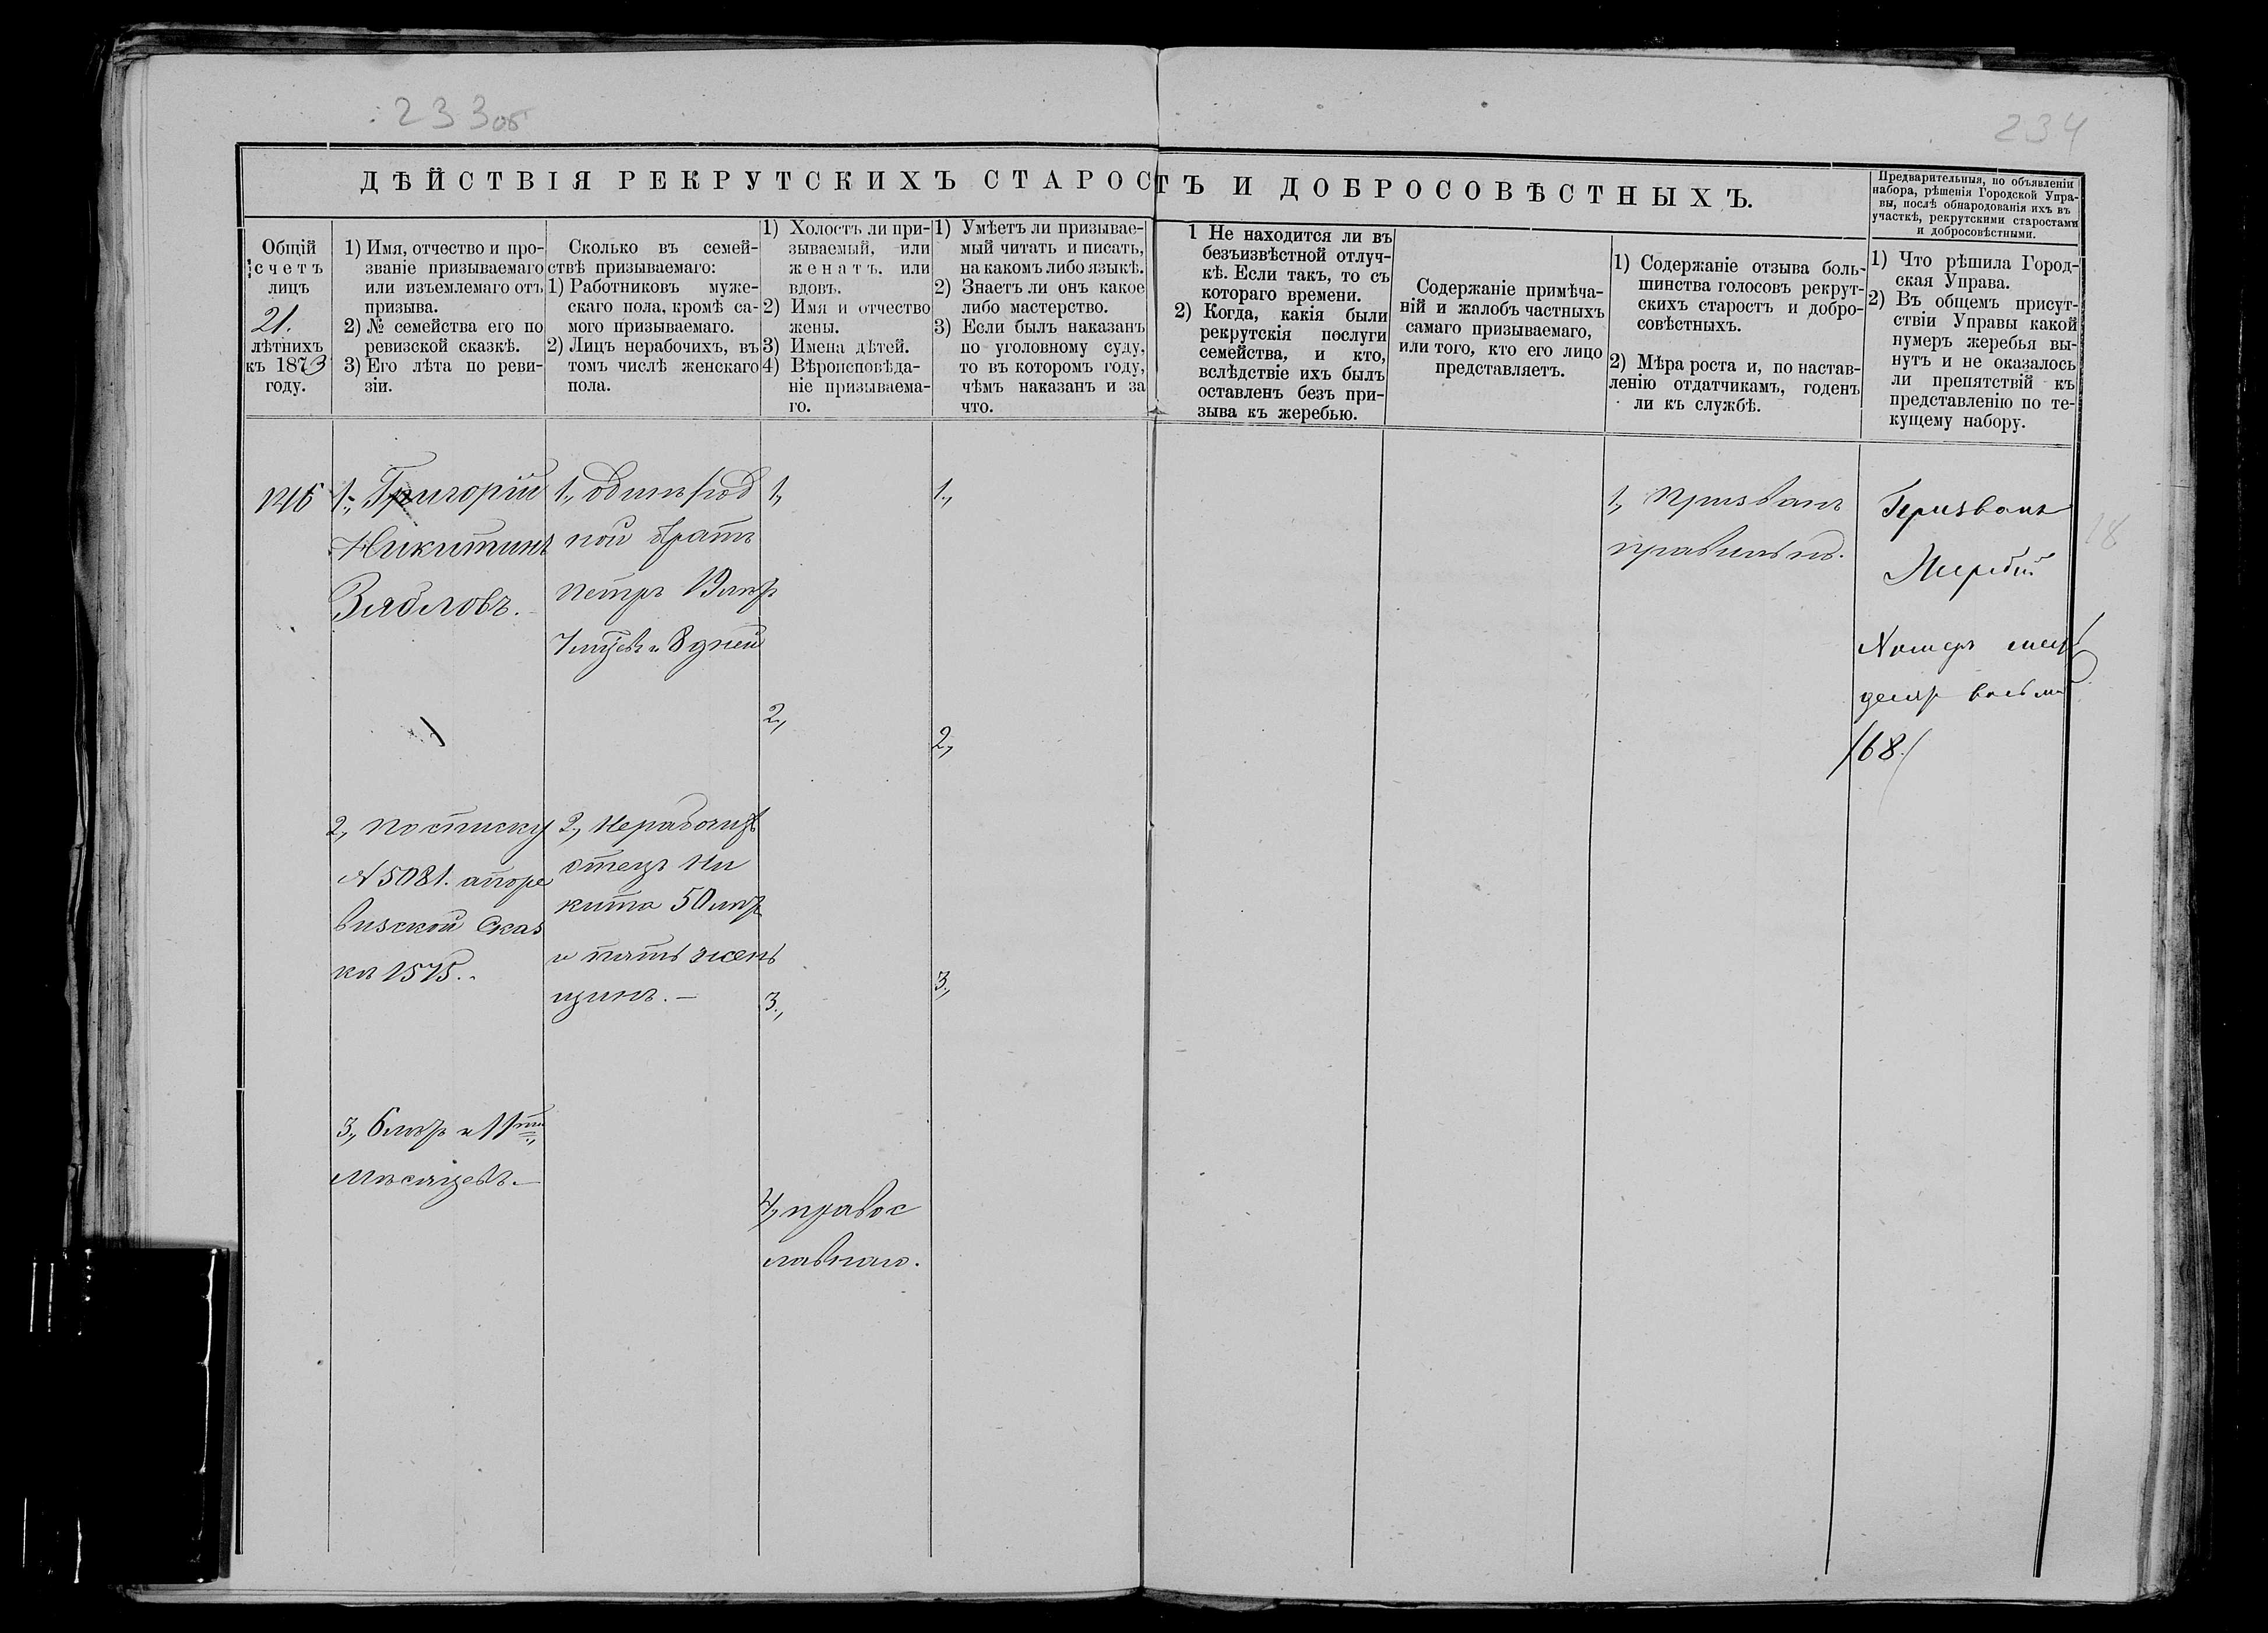 233об
234
ДѢЙСТВІЯ РЕКРУТСКИХЪ СТАРОСТЪ И ДОБРОСОВѢСТНЫХЪ.
Предварительныя, по объявленіи
набора, рѣшенія Городской Упра-
вы, послѣ обнародованія ихъ въ
участкѣ, рекрутскими старостами
и добросовѣстными.
Общій
счетъ
лицъ
21.
лѣтнихъ
къ 1873
году.
1) Имя, отчество и про-
званіе призываемаго
или изъемлемаго отъ
призыва.
2) № семейства его по
ревизской сказкѣ.
3) Его лѣта по реви-
зіи.
Сколько въ семей-
ствѣ призываемаго:
1) Работниковъ муже-
скаго пола, кромѣ са-
мого призываемаго.
2) Лицъ нерабочихъ, въ
томъ числѣ женскаго
пола.
1) Холостъ ли при-
зываемый, или
женатъ, или
вдовъ.
2) Имя и отчество
жены.
3) Имена дѣтей.
4) Вѣроисповѣда-
ніе призываема-
го.
1) Умѣетъ ли призывае-
мый читать и писать,
на какомъ либо языкѣ.
2) Знаетъ ли онъ какое
либо мастерство.
3) Если былъ наказанъ
по уголовному суду,
то въ которомъ году,
чѣмъ наказанъ и за
что.
1 Не находится ли въ
безъизвѣстной отлуч-
кѣ. Если такъ, то съ
котораго времени.
2) Когда, какія были
рекрутскія послуги
семейства, и кто,
вслѣдствіе ихъ былъ
оставленъ безъ при-
зыва къ жеребью.
Содержаніе примѣча-
ній и жалобъ частныхъ
самаго призываемаго,
или того, кто его лицо
представляетъ.
1) Содержаніе отзыва боль-
шинства голосовъ рекрут-
скихъ старостъ и добро-
совѣстныхъ.
2) Мѣра роста и, по настав-
ленію отдатчикамъ, годенъ
ли къ службѣ.
1) Что рѣшила Город-
ская Управа.
2) Въ общемъ присут-
ствіи Управы какой
нумеръ жеребья вы-
нутъ и не оказалось
ли препятствій къ
представленію по те-
кущему набору.
1, Григорій
Никитинъ
Зябловъ.
2, по списку
№ 5081. а по ре
визской Сказ
кѣ 1575.
3, 6 лѣтъ и 11ти
Мѣсяцевъ.
1, одинъ род
ной братъ
Петръ 19 лѣтъ
7 мцевъ и 8 дней
2, Нерабочихъ
отецъ Ни
кита 50 лѣтъ
и пять жен
щинъ.
1,
2,
3,
4, правос
лавнаго.
1,
2,
3,
1, Призванъ
правильно.
Призванъ
Жеребій
Номеръ шесть
десят восьмой
/68./